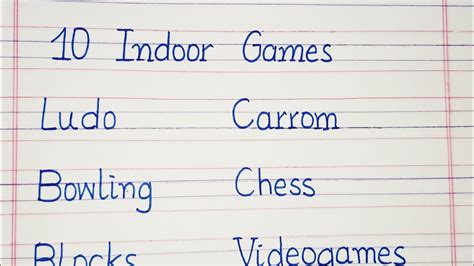 10 Indoor Games
Ludo Carrom
Bowling Chess
Blocks Videogames